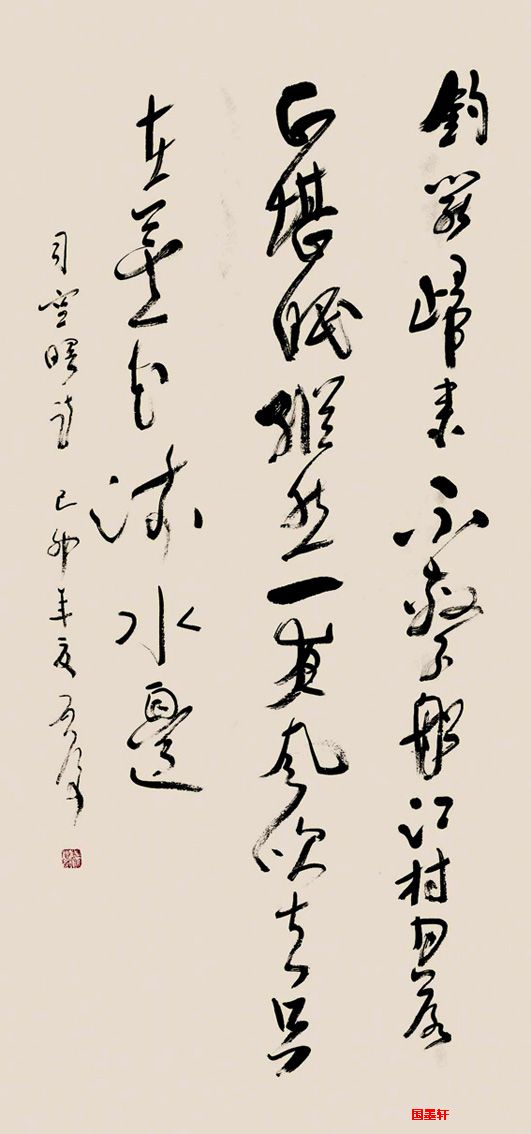 釣罷歸来不繫船江村月落
正堪眠縱然一夜風吹去只
在蘆花淺水邊
司空曙詩 己卯年夏
国墨轩